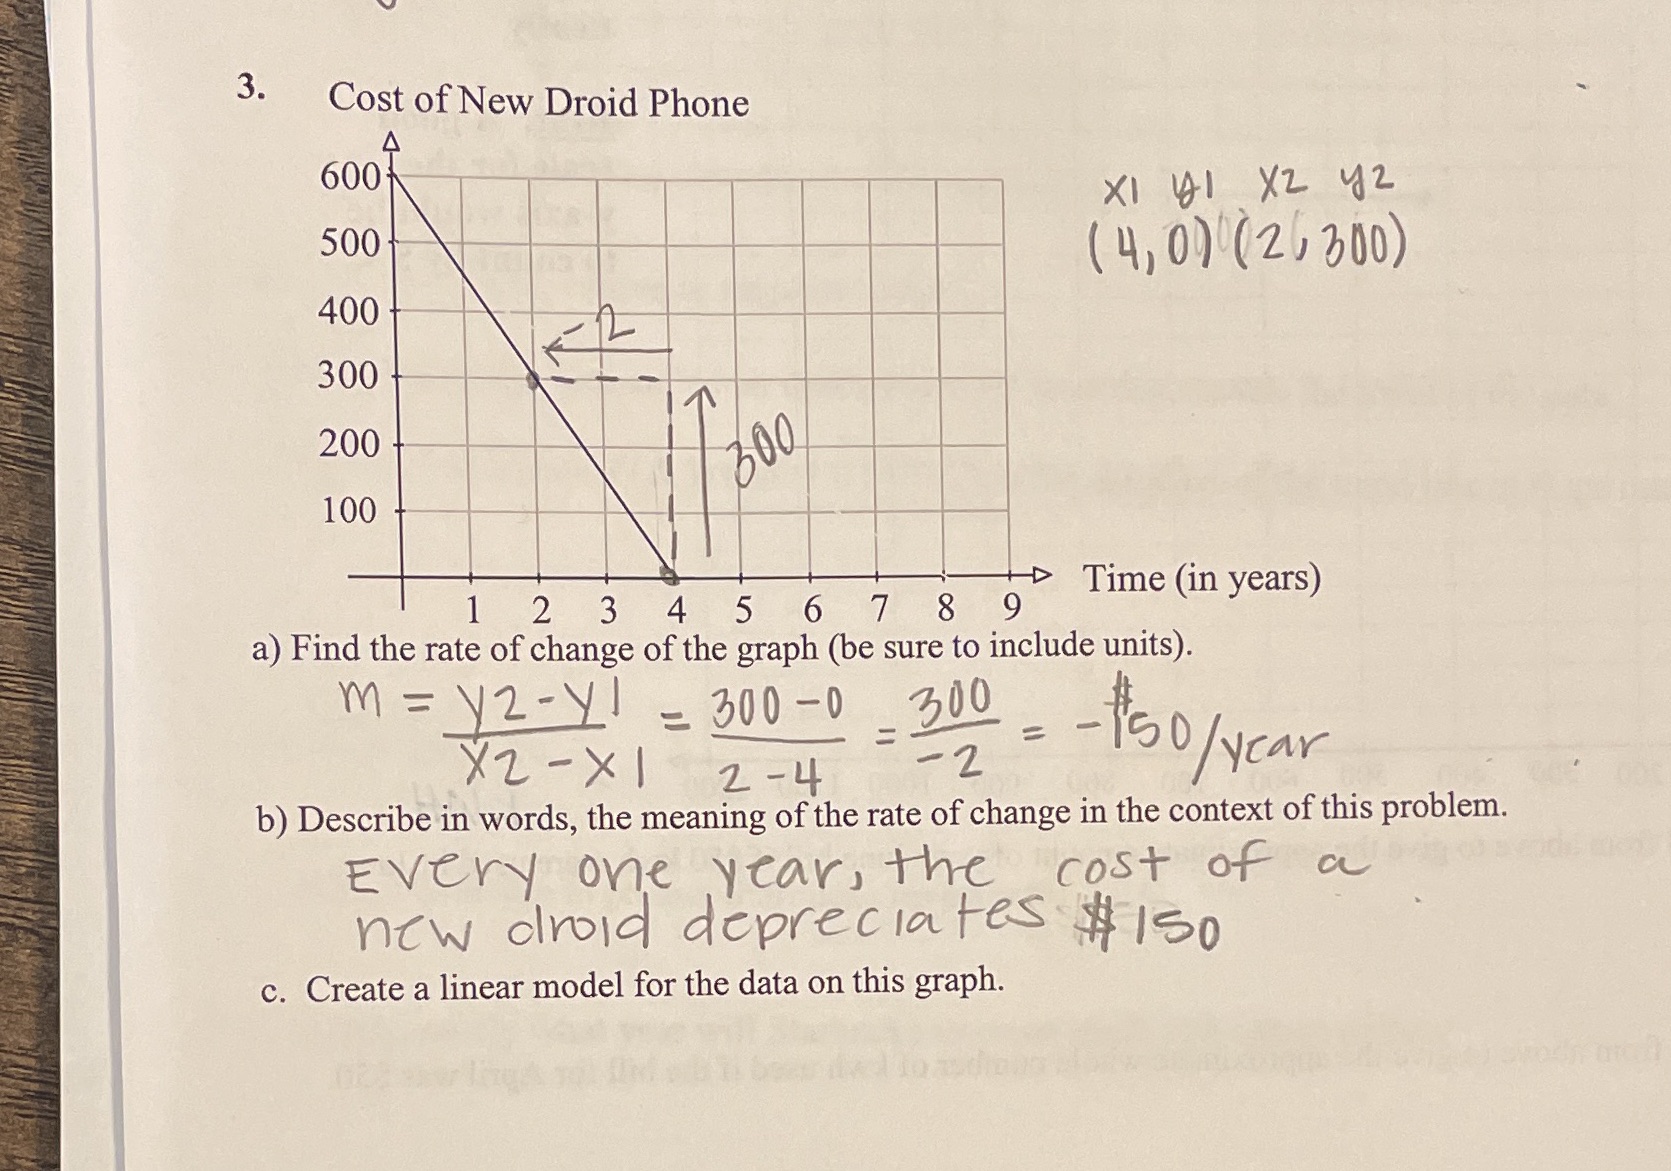 3. Cost of New Droid Phone
600
500
400
300
200
100
-2
300
x1 y1 x2 y2
(4,0) (2,300)
Time (in years)
1 2 3 4 5 6 7 8 9
a) Find the rate of change of the graph (be sure to include units).
m = y2-y1 / x2-x1 = 300-0 / 2-4 = 300 / -2 = -$150/year
b) Describe in words, the meaning of the rate of change in the context of this problem.
Every one year, the cost of a
new droid depreciates $150
c. Create a linear model for the data on this graph.